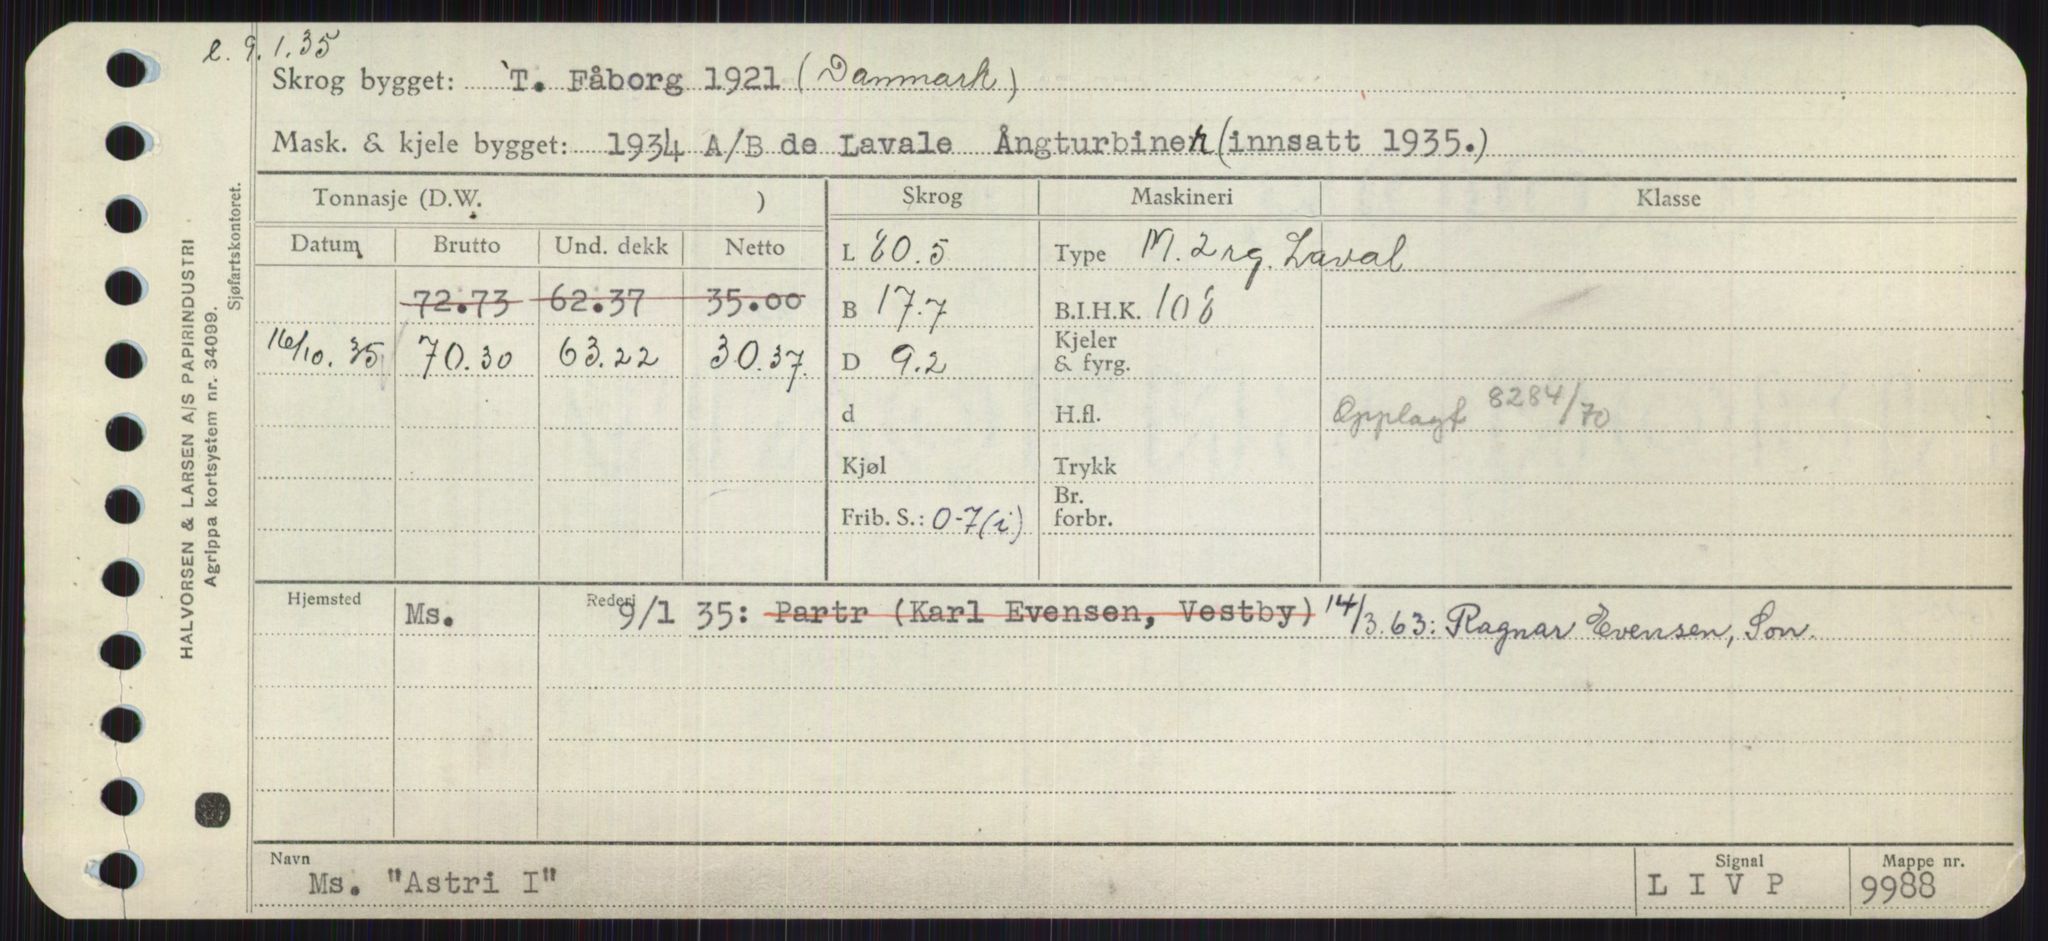 e. 9.1.35
Skrog bygget: T. Fåborg 1921 (Danmark)
Mask. & kjele bygget: 1934 A/B de Lavale Ångturbinen (innsatt 1935.)
Tonnasje (D.W. ) Skrog Maskineri Klasse
Datum Brutto Und. dekk Netto L 60.5 Type M. 2 rg. Laval
72.73 62.37 35.00 B 17.7 B.I.H.K. 106
16/10.35 70.30 63.22 30.37 D 9.2 Kjeler
& fyrg.
d H.fl. Opplagt 8284/70
Kjøl Trykk
Frib. S.: 0-7(i) Br.
forbr.
Hjemsted Rederi
Ms. 9/1 35: Partr (Karl Evensen, Vestby) 14/3.63: Ragnar Evensen, Son.
Navn Signal Mappe nr.
Ms. "Astri I" L I V P 9988
HALVORSEN & LARSEN A/S PAPIRINDUSTRI
Agrippa kortsystem nr. 34099.
Sjøfartskontoret.